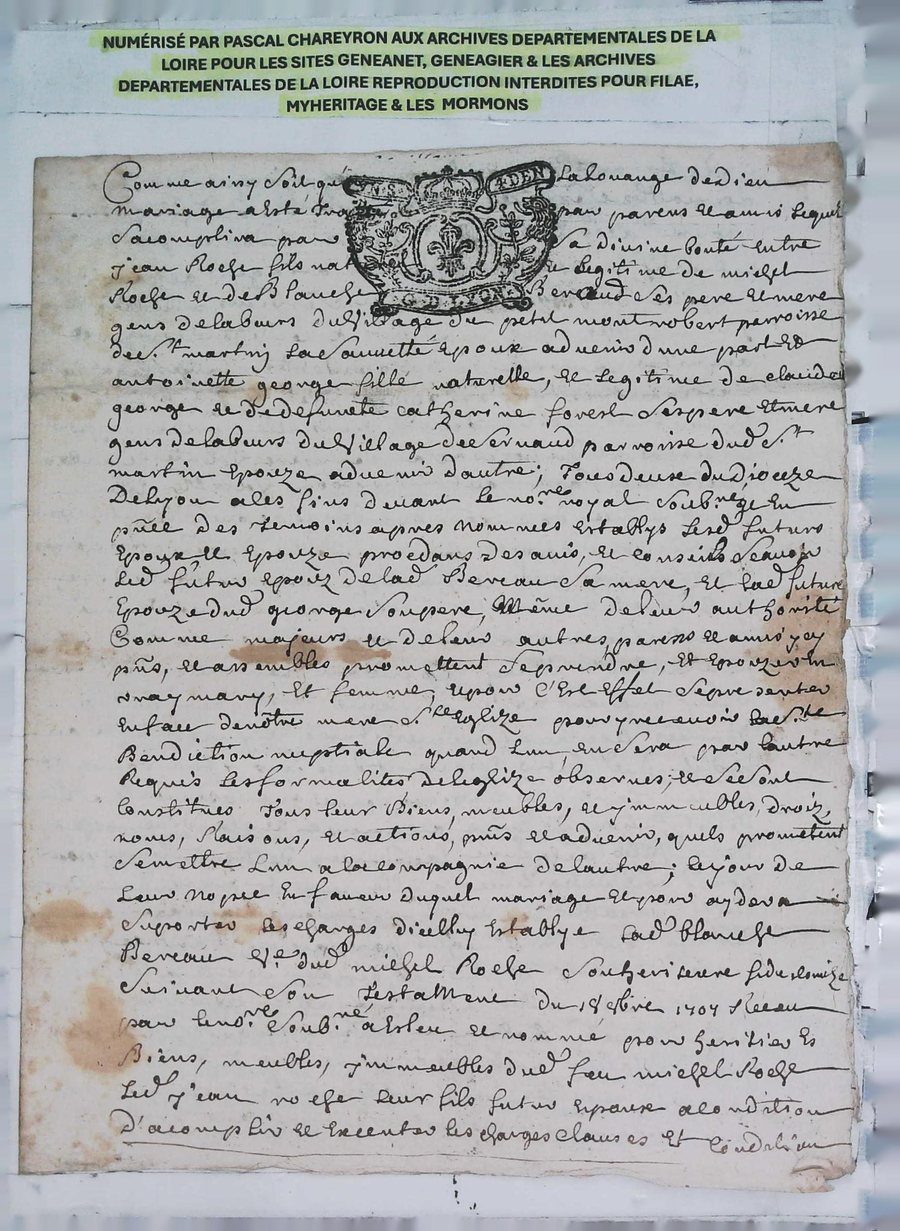 NUMÉRISÉ PAR PASCAL CHAREYRON AUX ARCHIVES DEPARTEMENTALES DE LA
LOIRE POUR LES SITES GENEANET, GENEAGIER & LES ARCHIVES
DEPARTEMENTALES DE LA LOIRE REPRODUCTION INTERDITES POUR FILAE,
MYHERITAGE & LES MORMONS
Comme ainsy soit que la louange de dieu
mariage a esté par parens et amis lequel
sacomplira par sa divine bonté entre
jean Roche fils nat et legitime de michel
Roche et de Blanche Beraud ses pere et mere
gens de labeurs du village du petit montrobert parroisse
de St martin la sauvetté Epoux advenir dune part et
antoinette george fille naturelle, et legitime de claude
george et de defuncte catherine forest ses pere et mere
gens de labeurs du village de parroisse dud St
martin Epouze advenir dautre; Tous deux du dioceze
De Lyon a les fins devant le nore royal soubne et en
pnce des temoins apres nommés Establys lesd futurs
Epoux et Epouze procedans de avis, et conseils scavoir
led futur Epouz de lad Bereau sa mere, et lad future
Epouze dud george son pere, Même de leur authorité
Comme majeurs et de leur autres parens et amis jcy
pns, et assemblés promettent se prendre, et Epouzer en
vray mary, et femme, et pour c'est Effet se presenter
En face de notre mere Ste Eglize pour y recevoir la Ste
Bendiction nuptiale quand lun en sera par lautre
Requis les formalites de leglize observes; et se sont
constitues Tous leur Biens, meubles, et jmmeubles, droiz,
noms, Raisons, et actions, pns et advenir, quels promettent
se mettre lun a la compagnie de lautre; le jour de
Leur nopce En faveur duquel mariage et pour ayder a
suporter les charges d'icelluy Establye lad blanche
Bereau Ve dud michel Roche son heritiere
suivant son Testament du 1707 Receu
par le nore soubné a esleu et nommé pour heritier Es
Biens, meubles, jmmeubles dud feu michel Roche
Led jean roche leur fils futur Epoux a condition
D'acomplir et executer les charges clauses et condition